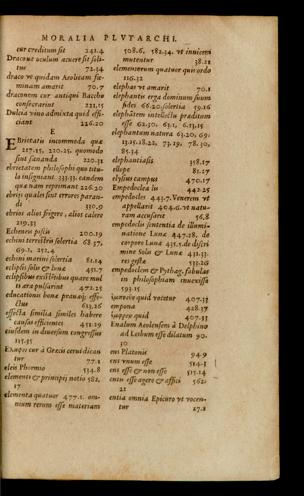 MORALIA PLVTARCHI.
cur creditum sit 241.4
Draconum oculum acuere sit soli-
tus 72.34
draco vt quidam Aeolicam foe-
minam amarit 70.7
draconem cur antiqui Baccho
consecrarint 221.15
Dulcia vino admixta quid effi-
ciant 226.20
E
Ebrietatis incommoda quæ
217.15. 220.25. quomodo
sint sananda 220.31
ebrietatem philosophi quo titu-
lo insigniant. 333.33. eandem
quā nam reprimant 226.20
ebrijs quales sint errores paran-
di 330.9
ebrios alios frigere, alios calere
219.33
Echeneis piscis 200.19
echini terrestris solertia 68.37.
69.1. 252.4
echini marini solertia 81.14
eclipsis solis & lunæ 451.7
eclipsibus excitibus quare mul
ti ara pulsarint 472.25
educationis bonæ
ctus 613.26
effecta similia similes habere
causas efficientes 451.29
eiusdem in diuersum congressus
115.55
cur à Græcis cerui dican
tur 77.1
eleis Phormio 534.8
elementi & principij notio 582.
17
elementa quatuor 477.1. om-
nium rerum esse materiam
508.6. 582.34. vt inuicem
mutentur 38.22
elementorum quatuor quis ordo
116.32
elephas vt amarit 70.1
elephantis erga dominum suum
fides 66.20. solertia 59.16
elephātem intellectu præditum
esse 62.50. 63.1. 6.13.15
elephantum natura 63.20. 69.
13.25.28.21. 73.19. 78.30.
85.34
elephantiasis 358.17
ellope 81.27
elysius campus 470.17
Empedoclea lis 442.25
empedocles 443.7. Venerem vt
appellarit 404.6. vt natu-
ram accusarit 56.8
empedoclis sententia de illumi-
natione Lunæ 447.28. de
corpore Lunæ 431.1. de discri
mine Solis & Lunæ 431.33.
res gesta 533.26
empedoclem & Pythag. fabulas
in philosophiam inuexisse
593.15
quid vocetur 407.33
empona 428.37
quid 407.33
Enalum Aeolensem à Delphino
ad Lesbum esse dilatum 90.
30
ens Platonis 94.9
ens vnum esse 514.3
ens esse & non esse 515.14
entis esse agere & affici 562.
21
entia omnia Epicuro vt vocen-
tur 27.2